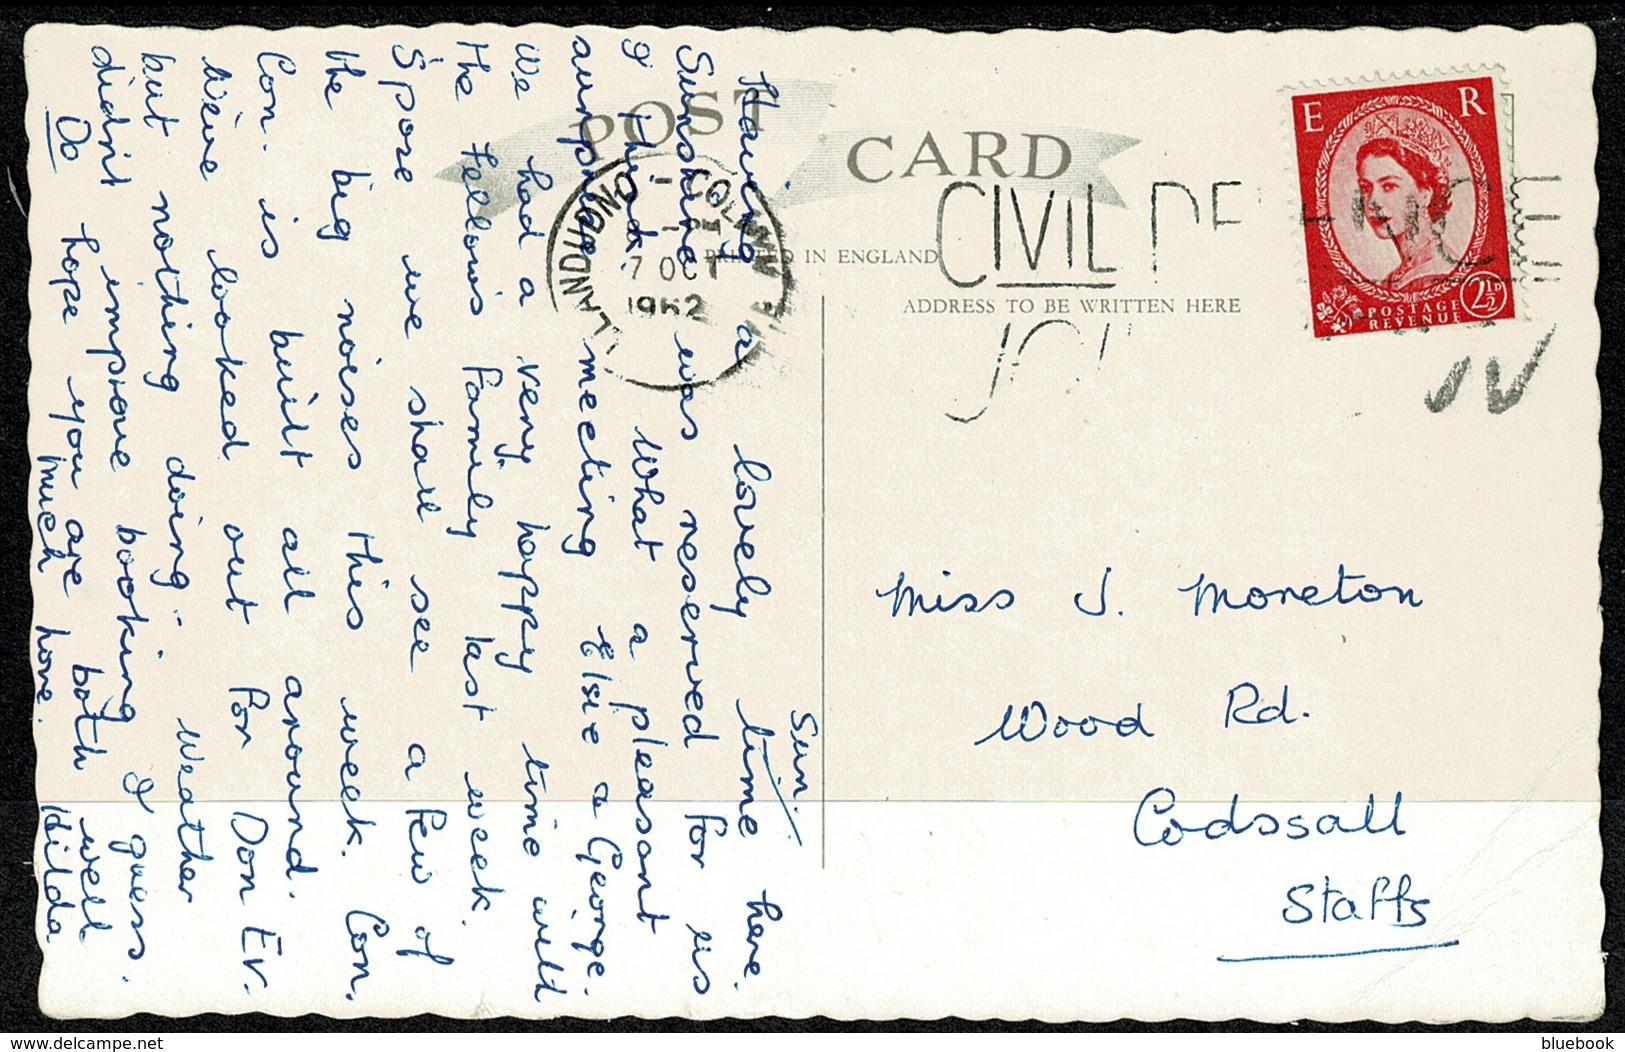 POST CARD
PRINTED IN ENGLAND
ADDRESS TO BE WRITTEN HERE
LLANDUDNO - COLWYN
7 OCT
1962
CIVIL DE
E R
POSTAGE
REVENUE
2½D
Sun.
Having a lovely time here.
Sunshine was reserved for us
I think. What a pleasant
surprise meeting Elsie & George.
We had a very happy time with
the Fellows Family last week.
S'pose we shall see a few of
the big noises this week. Con.
Con. is built all around.
We've looked out for Don Ev.
but nothing doing - Weather
didn't improve booking I guess.
Do hope you are both well
Much love. Hilda
Miss J. Moreton
Wood Rd.
Codssall
Staffs
bluebook